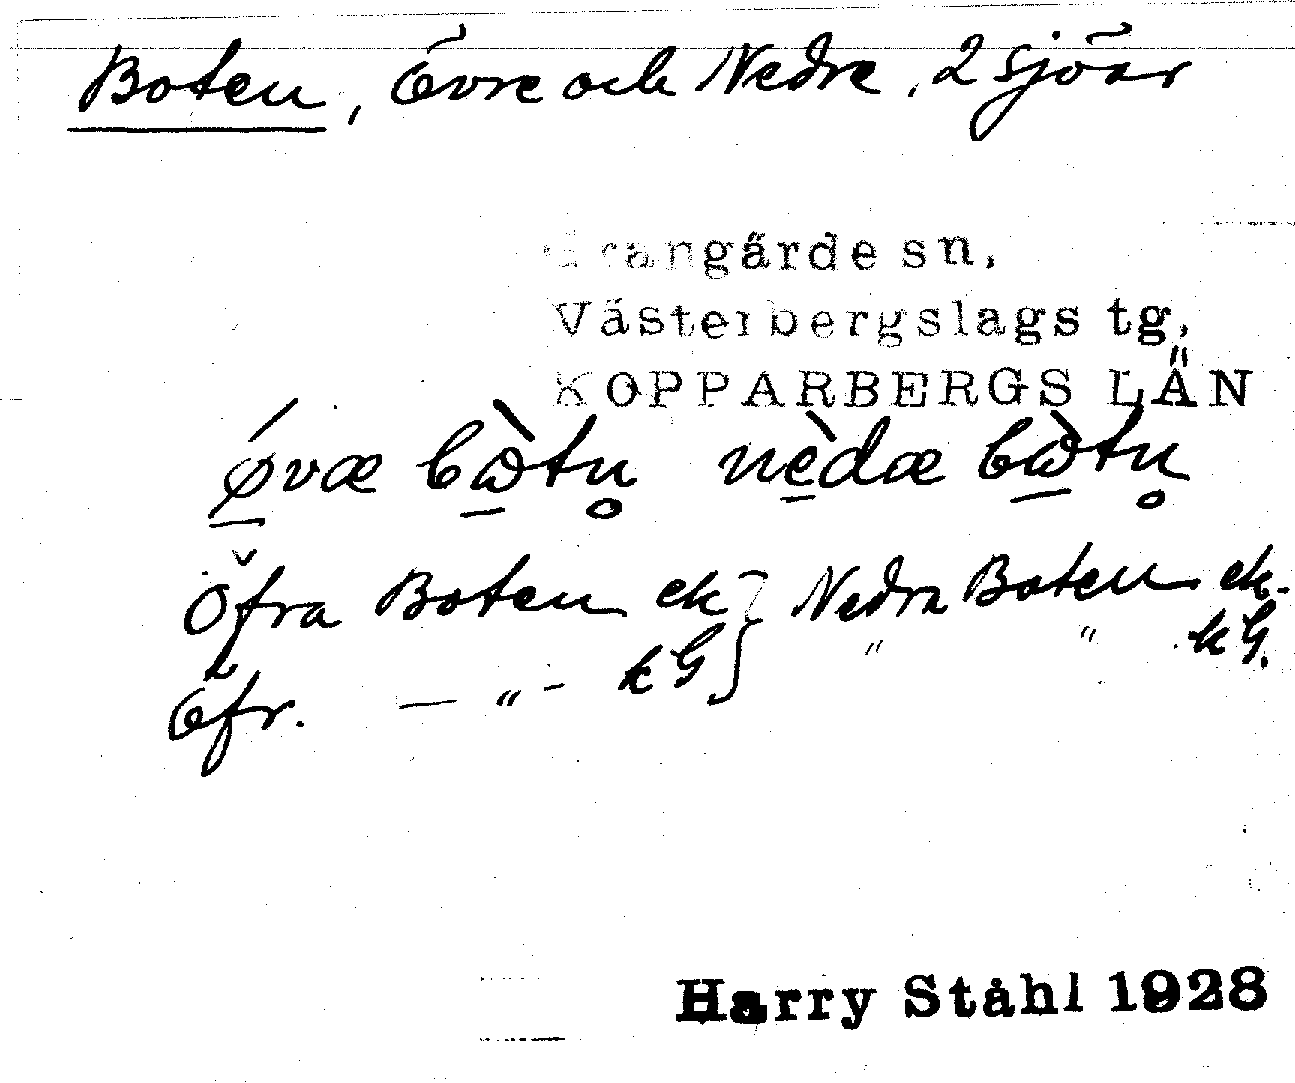 Boten, Övre och Nedre, 2 sjöar
Grangärde sn,
Västerbergslags tg,
KOPPARBERGS LÄN
Öfra Boten ek } Nedra Boten ek.
Öfr. — " - kG } " " kG.
Harry Ståhl 1928